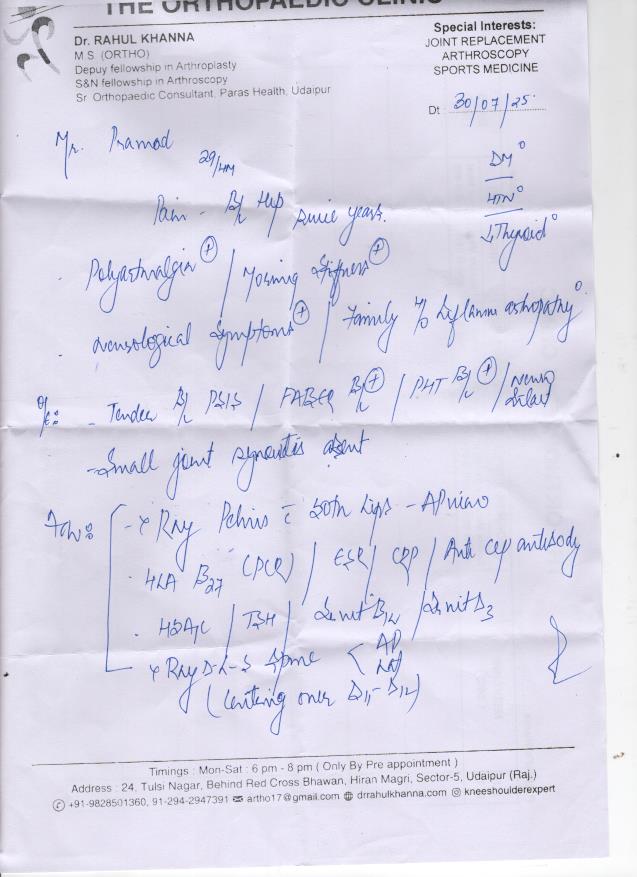 THE ORTHOPAEDIC CLINIC
Dr. RAHUL KHANNA
M S (ORTHO)
Depuy fellowship in Arthroplasty
S&N fellowship in Arthroscopy
Sr Orthopaedic Consultant, Paras Health, Udaipur
Special Interests:
JOINT REPLACEMENT
ARTHROSCOPY
SPORTS MEDICINE
Dt 30/07/25
Mr. Pramod
29/M
DM°
HTN°
Thyroid°
Pain - B/L Hip since years.
Polyarthralgia + / Morning Stiffness +
neurological symptoms + / Family H/o Inflamm arthropathy °
O/E: - Tender B/L PSIS / FABER B/L + / PHT B/L + / Neuro
- Small joint synovitis absent
Adv: - X Ray Pelvis c both hips - AP view
. HLA B27 (PCR) / ESR / CRP / Anti ccp antibody
. HBA1C / TSH / B12 / D3
X Ray D-L-S Spine < AP
(centring over D11-D12)
Timings : Mon-Sat : 6 pm - 8 pm ( Only By Pre appointment )
Address : 24, Tulsi Nagar, Behind Red Cross Bhawan, Hiran Magri, Sector-5, Udaipur (Raj.)
+91-9828501360, 91-294-2947391 artho17@gmail.com drrahulkhanna.com kneeshoulderexpert